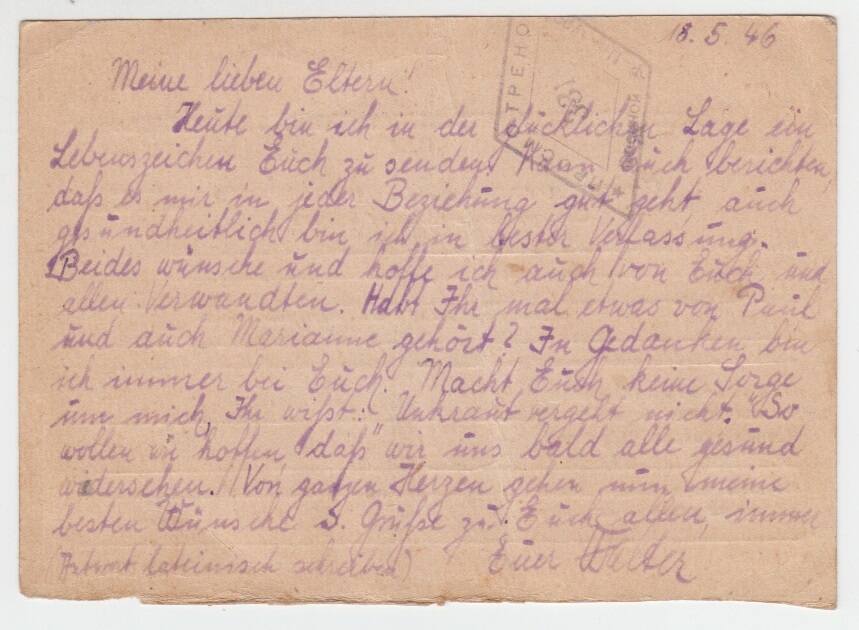 18. 5. 46
Meine lieben Eltern!
Heute bin ich in der glücklichen Lage ein
Lebenszeichen Euch zu senden. Kann Euch berichten,
daß es mir in jeder Beziehung gut geht, auch
gesundheitlich bin ich in bester Verfassung.
Beides wünsche und hoffe ich auch von Euch und
allen Verwandten. Habt Ihr mal etwas von Paul
und auch Marianne gehört? In Gedanken bin
ich immer bei Euch. Macht Euch keine Sorge
um mich, Ihr wißt: "Unkraut vergeht nicht." So
wollen wir hoffen daß wir uns bald alle gesund
widersehen. Von ganzen Herzen gehen nun meine
besten Wünsche u. Grüße zu Euch allen, immer
(Antwort lateinisch schreiben) Euer Walter